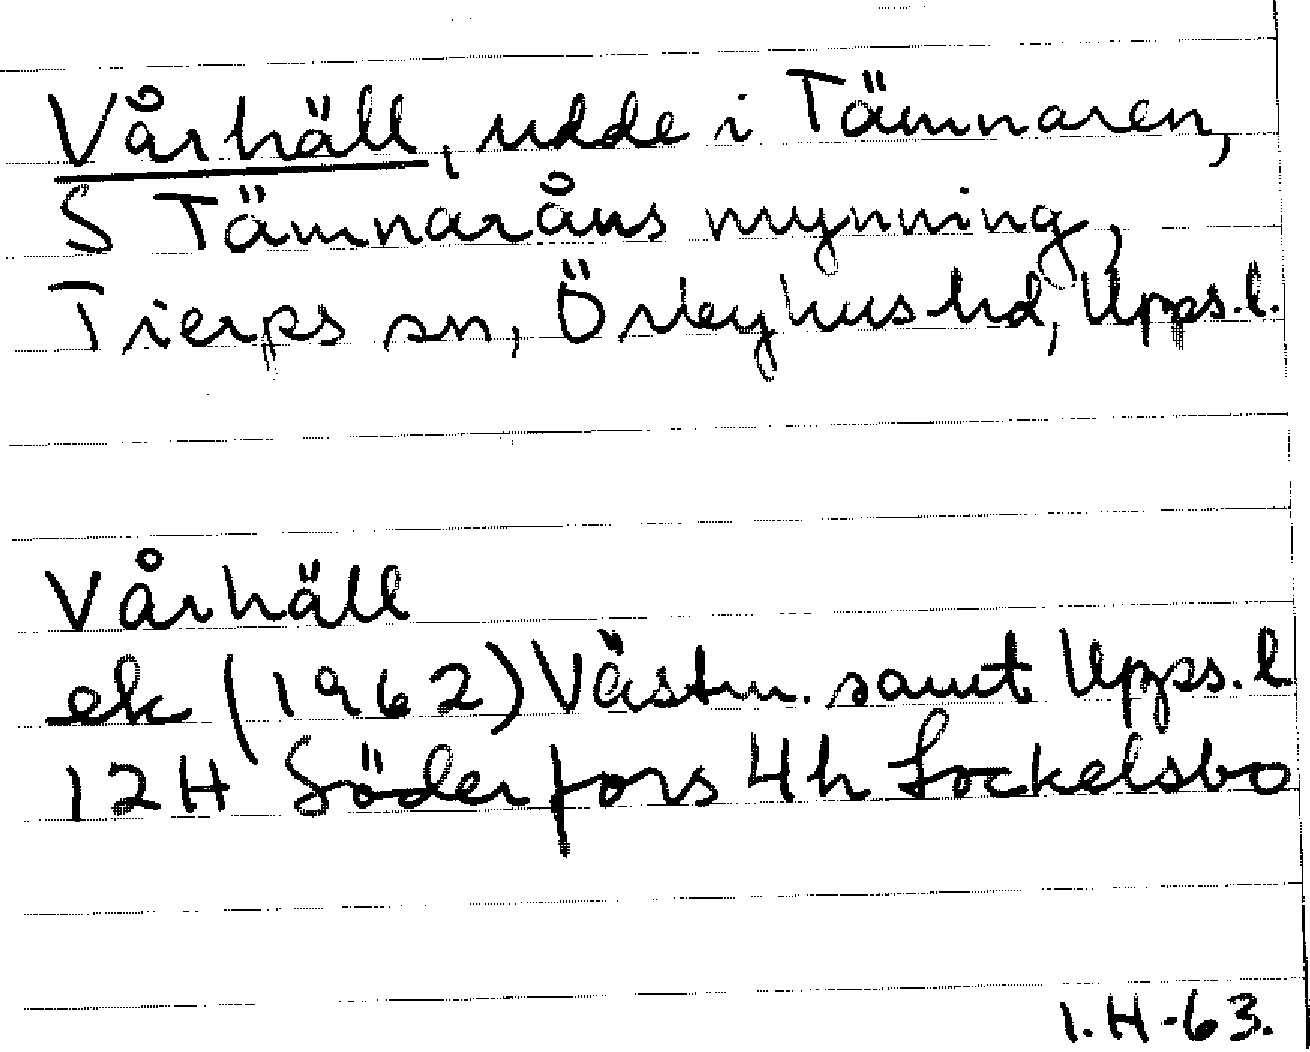 Vårhäll, udde i Tämnaren,
S Tämnaråns mynning,
Tierps sn, Örbyhus hd, Upps.l.
Vårhäll
ek (1962) Västm. samt Upps.l
12H Söderfors 4h Sockelsbo
I.H-63.